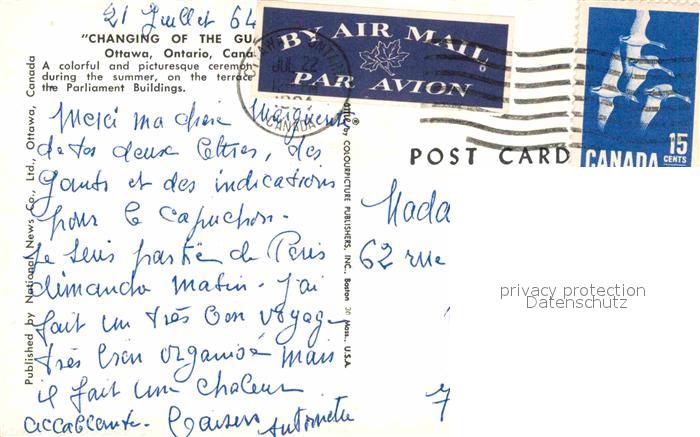 21 Juillet 64
"CHANGING OF THE GU
Ottawa, Ontario, Cana
A colorful and picturesque ceremon
during the summer, on the terrace
the Parliament Buildings.
BY AIR MAIL
PAR AVION
OTTAWA ONTARIO
JUL 22
CANADA
15
CENTS
CANADA
POST CARD
Merci ma chère Marguerite
de tes deux lettres, des
gants et des indications
pour le capuchon.
Je suis partie de Paris
dimanche matin. J'ai
fait un très bon voyage
très bien organisé mais
il fait une chaleur
accablante. Baisers
Antoinette
Mada
62 rue
7
Published by National News Co., Ltd., Ottawa, Canada
by COLOURPICTURE PUBLISHERS, INC., Boston 30, Mass., U.S.A.
privacy protection
Datenschutz